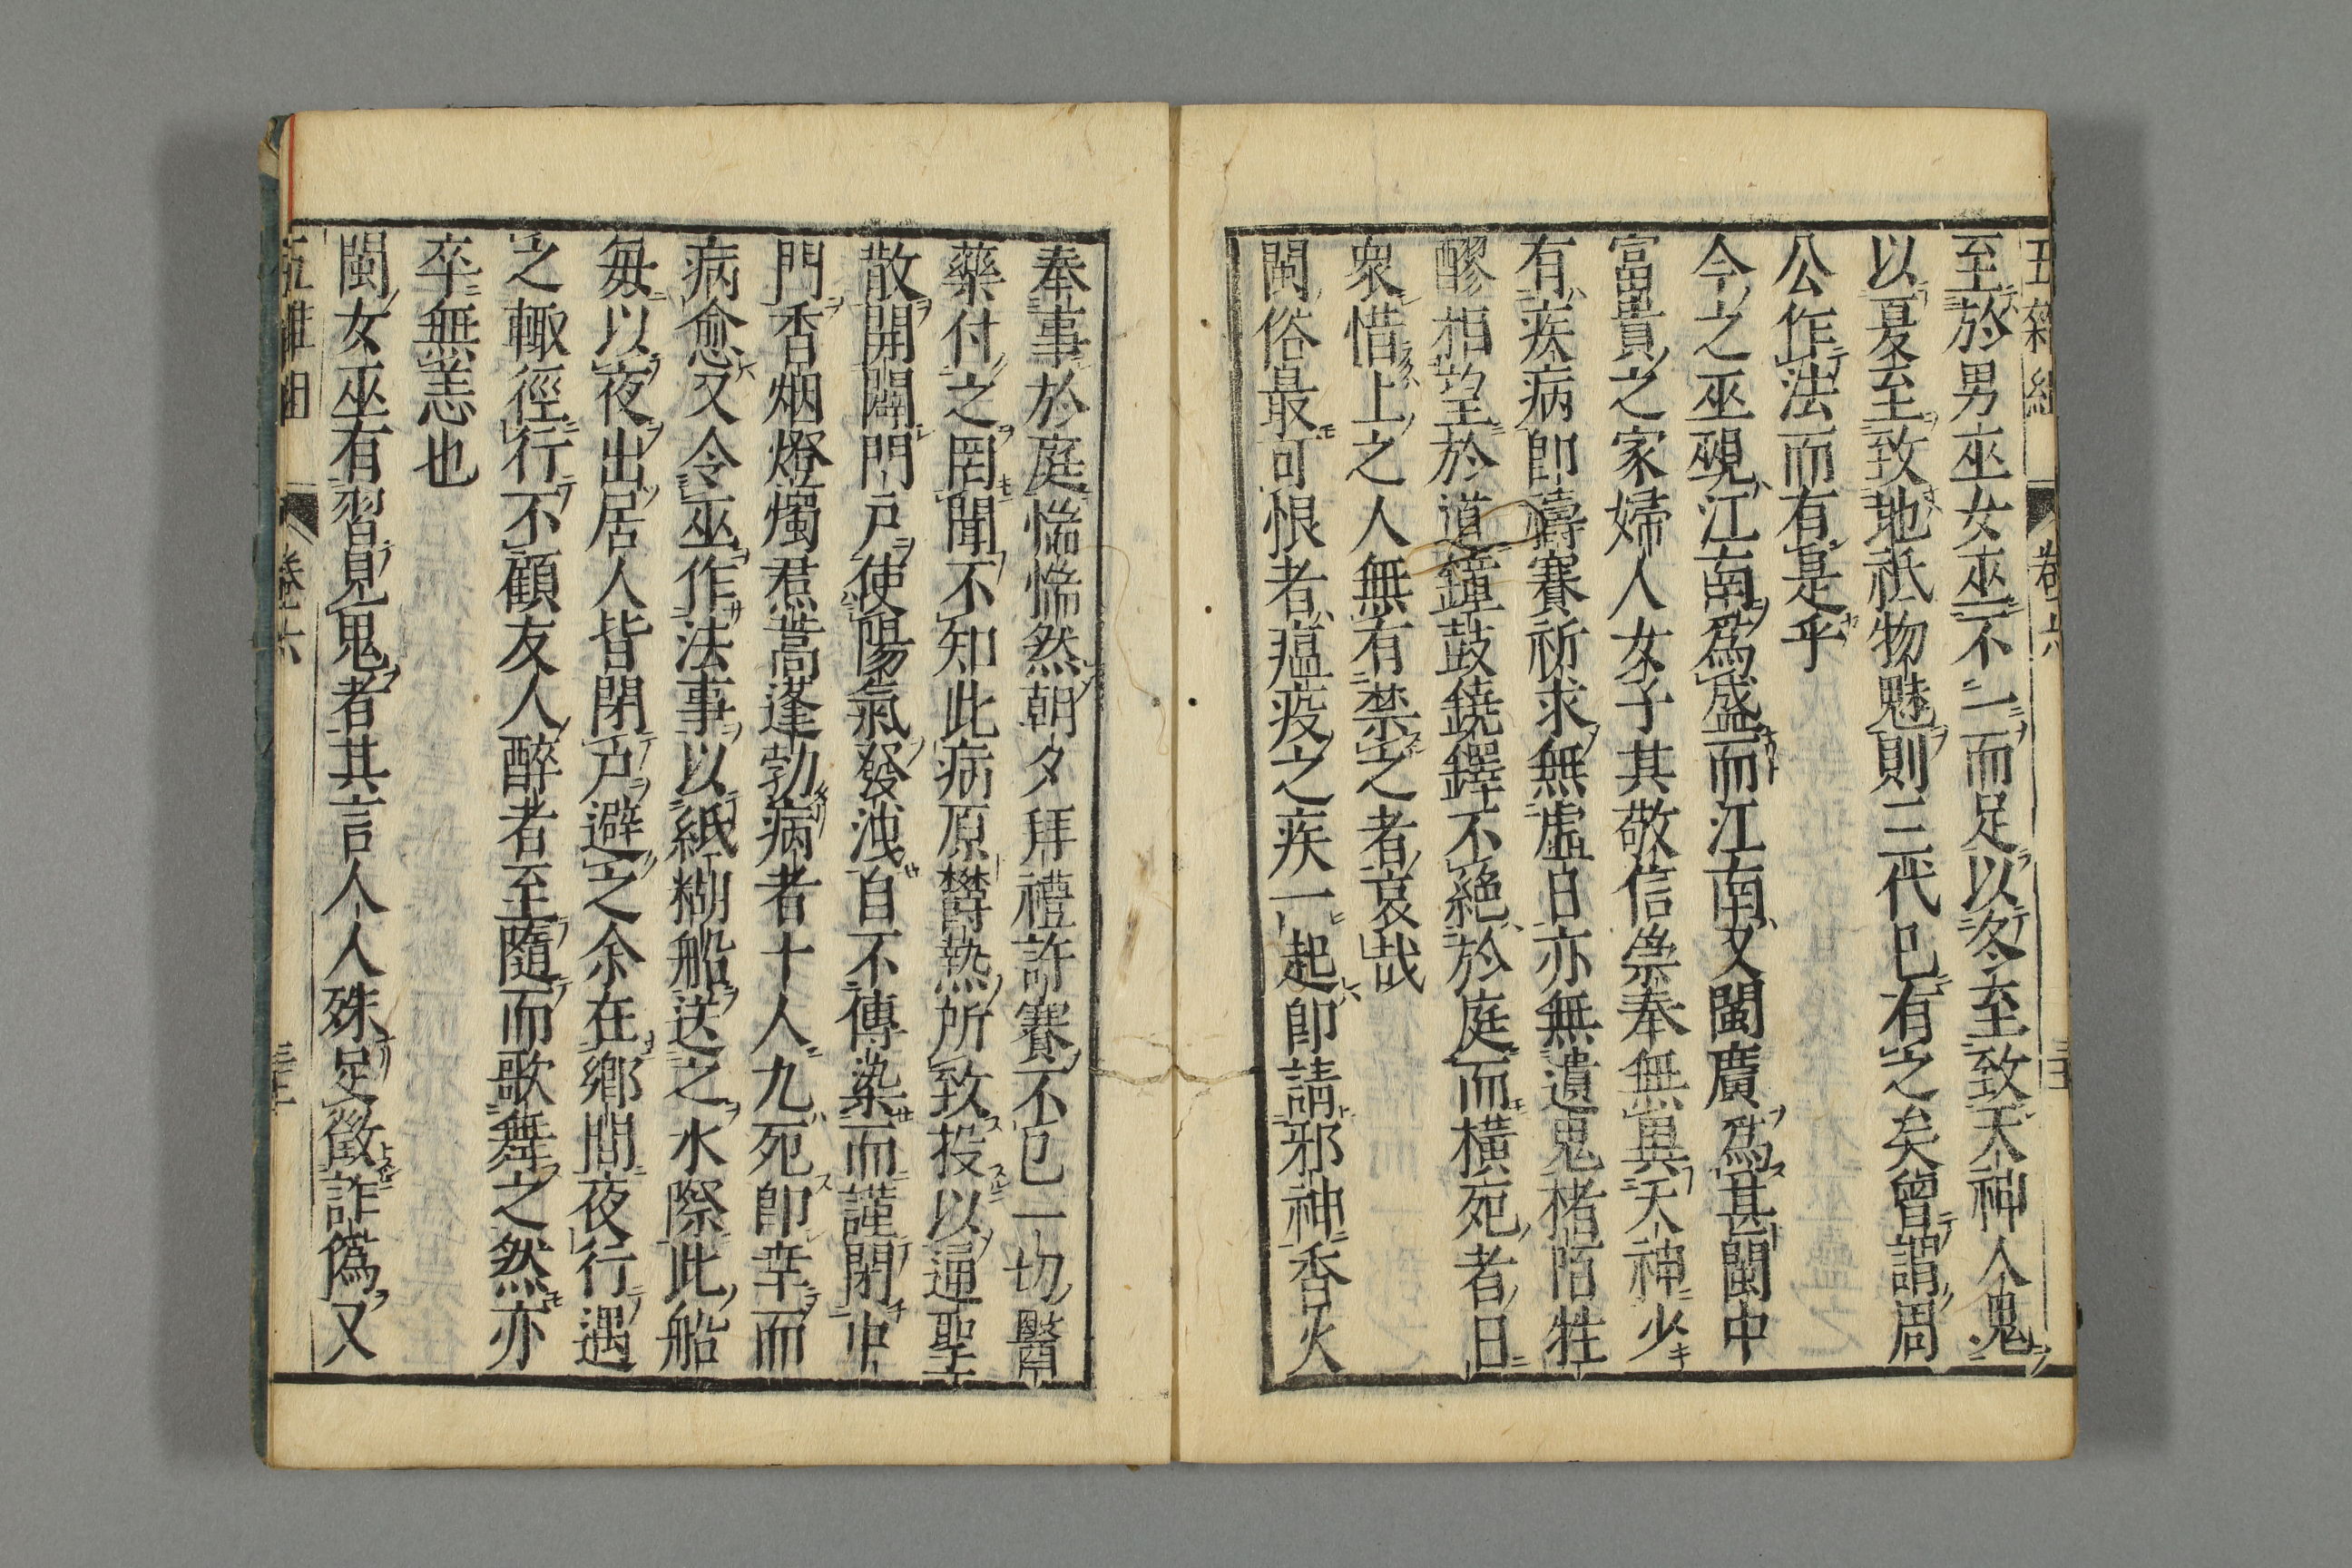 五雜組 卷六
至於男巫女巫不一而足以冬至致天神人鬼
以夏至致地祇物魅則三代巳有之矣曾謂周
公作法而有是乎
今之巫覡江南爲盛而江南又閩廣爲甚閩中
富貴之家婦人女子其敬信崇奉無異天神少
有疾病即禱賽祈求無虛日亦無遺鬼楮陌牲
醪相望於道鐘鼓鐃鐸不絕於庭而橫死者日
衆惜上之人無有禁之者哀哉
閩俗最可恨者瘟疫之疾一起即請邪神香火
奉事於庭惴惴然朝夕拜禮許賽不巳一切醫
藥付之罔聞不知此病原欝熱所致投以通聖
散開闢門戶使陽氣發洩自不傳染而謹閉中
門香烟燈燭焄蒿蓬勃病者十人九死即幸而
病愈又令巫作法事以紙糊船送之水際此船
每以夜出居人皆閉戶避之余在鄉間夜行遇
之輒徑行不顧友人醉者至隨而歌舞之然亦
卒無恙也
閩女巫有習見鬼者其言人人殊足徵詐僞又
卷六